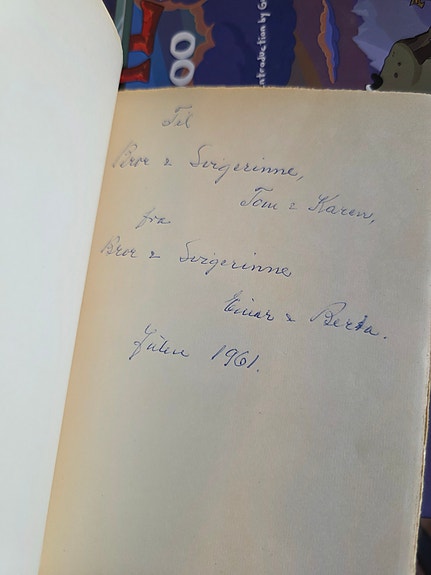 OO
Introduction by G
Til
Bror & Svigerinne,
Tom & Karen,
fra
Bror & Svigerinne
Einar & Berta.
Julen 1961.